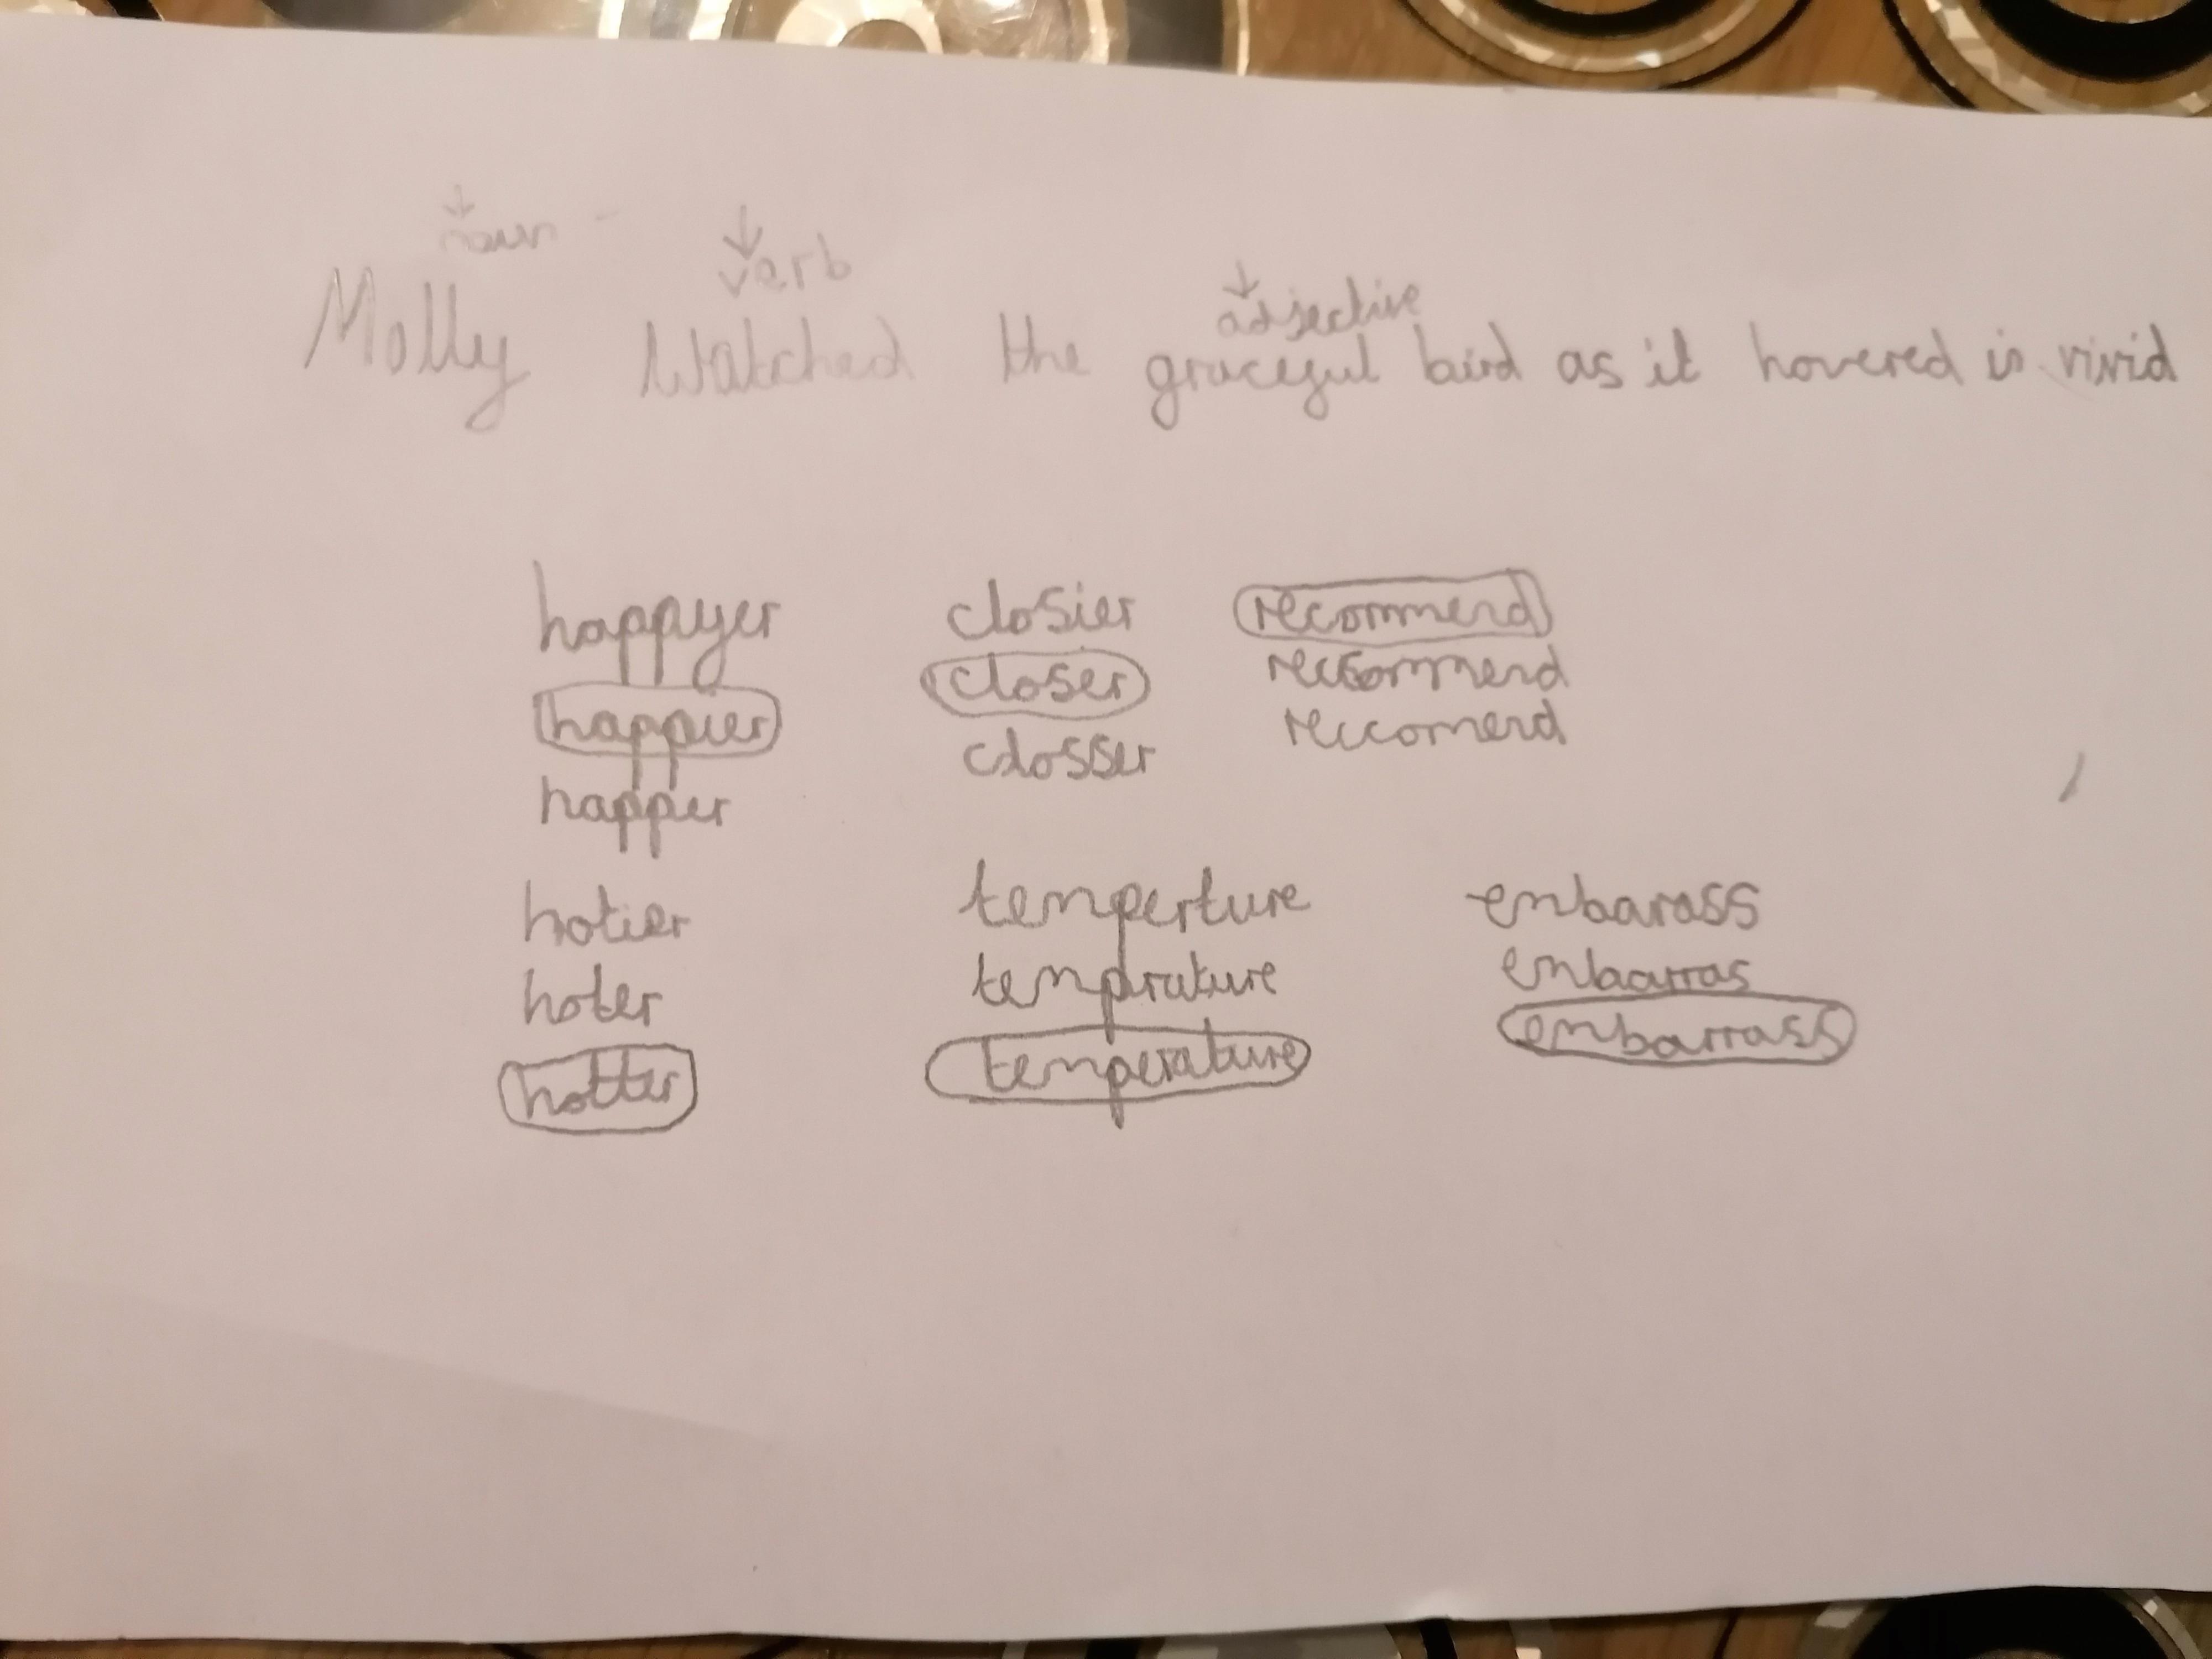 noun verb adjective
Molly Watched the graceful bird as it hovered is vivid
happyer closier recommend
happier closer reccommend
happer closser reccomend
hotier temperture embarass
hoter temprature embarras
hotter temperature embarrass